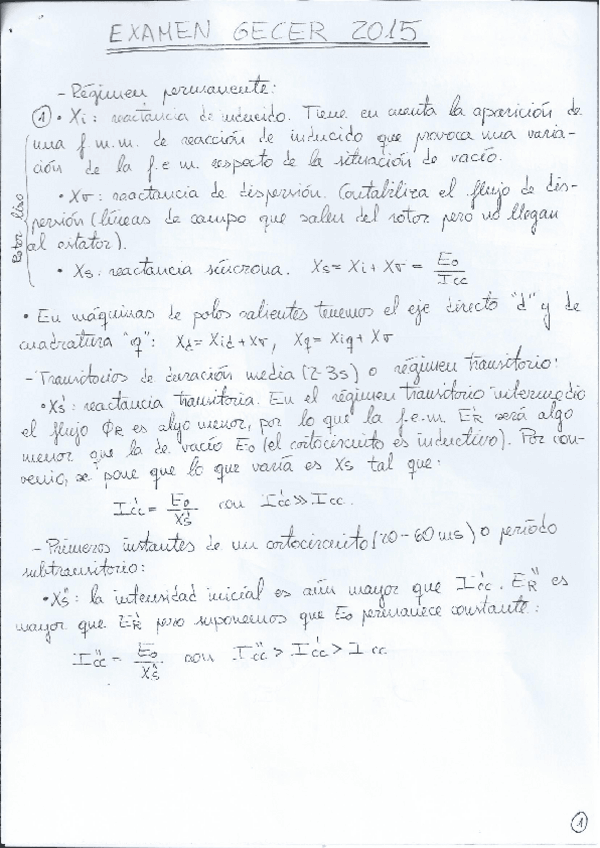 EXAMEN GECER 2015
- Régimen permanente:
① • Xi: reactancia de inducido. Tiene en cuenta la aparición de
una f.m.m. de reacción de inducido que provoca una varia-
ción de la f.e.m. respecto de la situación de vacío.
• Xσ: reactancia de dispersión. Contabiliza el flujo de dis-
persión (líneas de campo que salen del rotor pero no llegan
al estator).
Rotor liso
• Xs: reactancia síncrona. Xs = Xi + Xσ = E₀/Icc
• En máquinas de polos salientes tenemos el eje directo "d" y de
cuadratura "q": Xd = Xid + Xσ, Xq = Xiq + Xσ
- Transitorios de duración media (2-3s) o régimen transitorio:
• Xs': reactancia transitoria. En el régimen transitorio intermedio
el flujo ΦR es algo menor, por lo que la f.e.m. ER' será algo
menor que la de vacío E₀ (el cortocircuito es inductivo). Por con-
venio, se pone que lo que varía es Xs tal que:
Icc' = E₀/Xs' con Icc' >> Icc.
- Primeros instantes de un cortocircuito (20-60 ms) o período
subtransitorio:
• Xs'': la intensidad inicial es aún mayor que Icc'. ER'' es
mayor que ER' pero suponemos que E₀ permanece constante:
Icc'' = E₀/Xs'' con Icc'' > Icc' > Icc
①